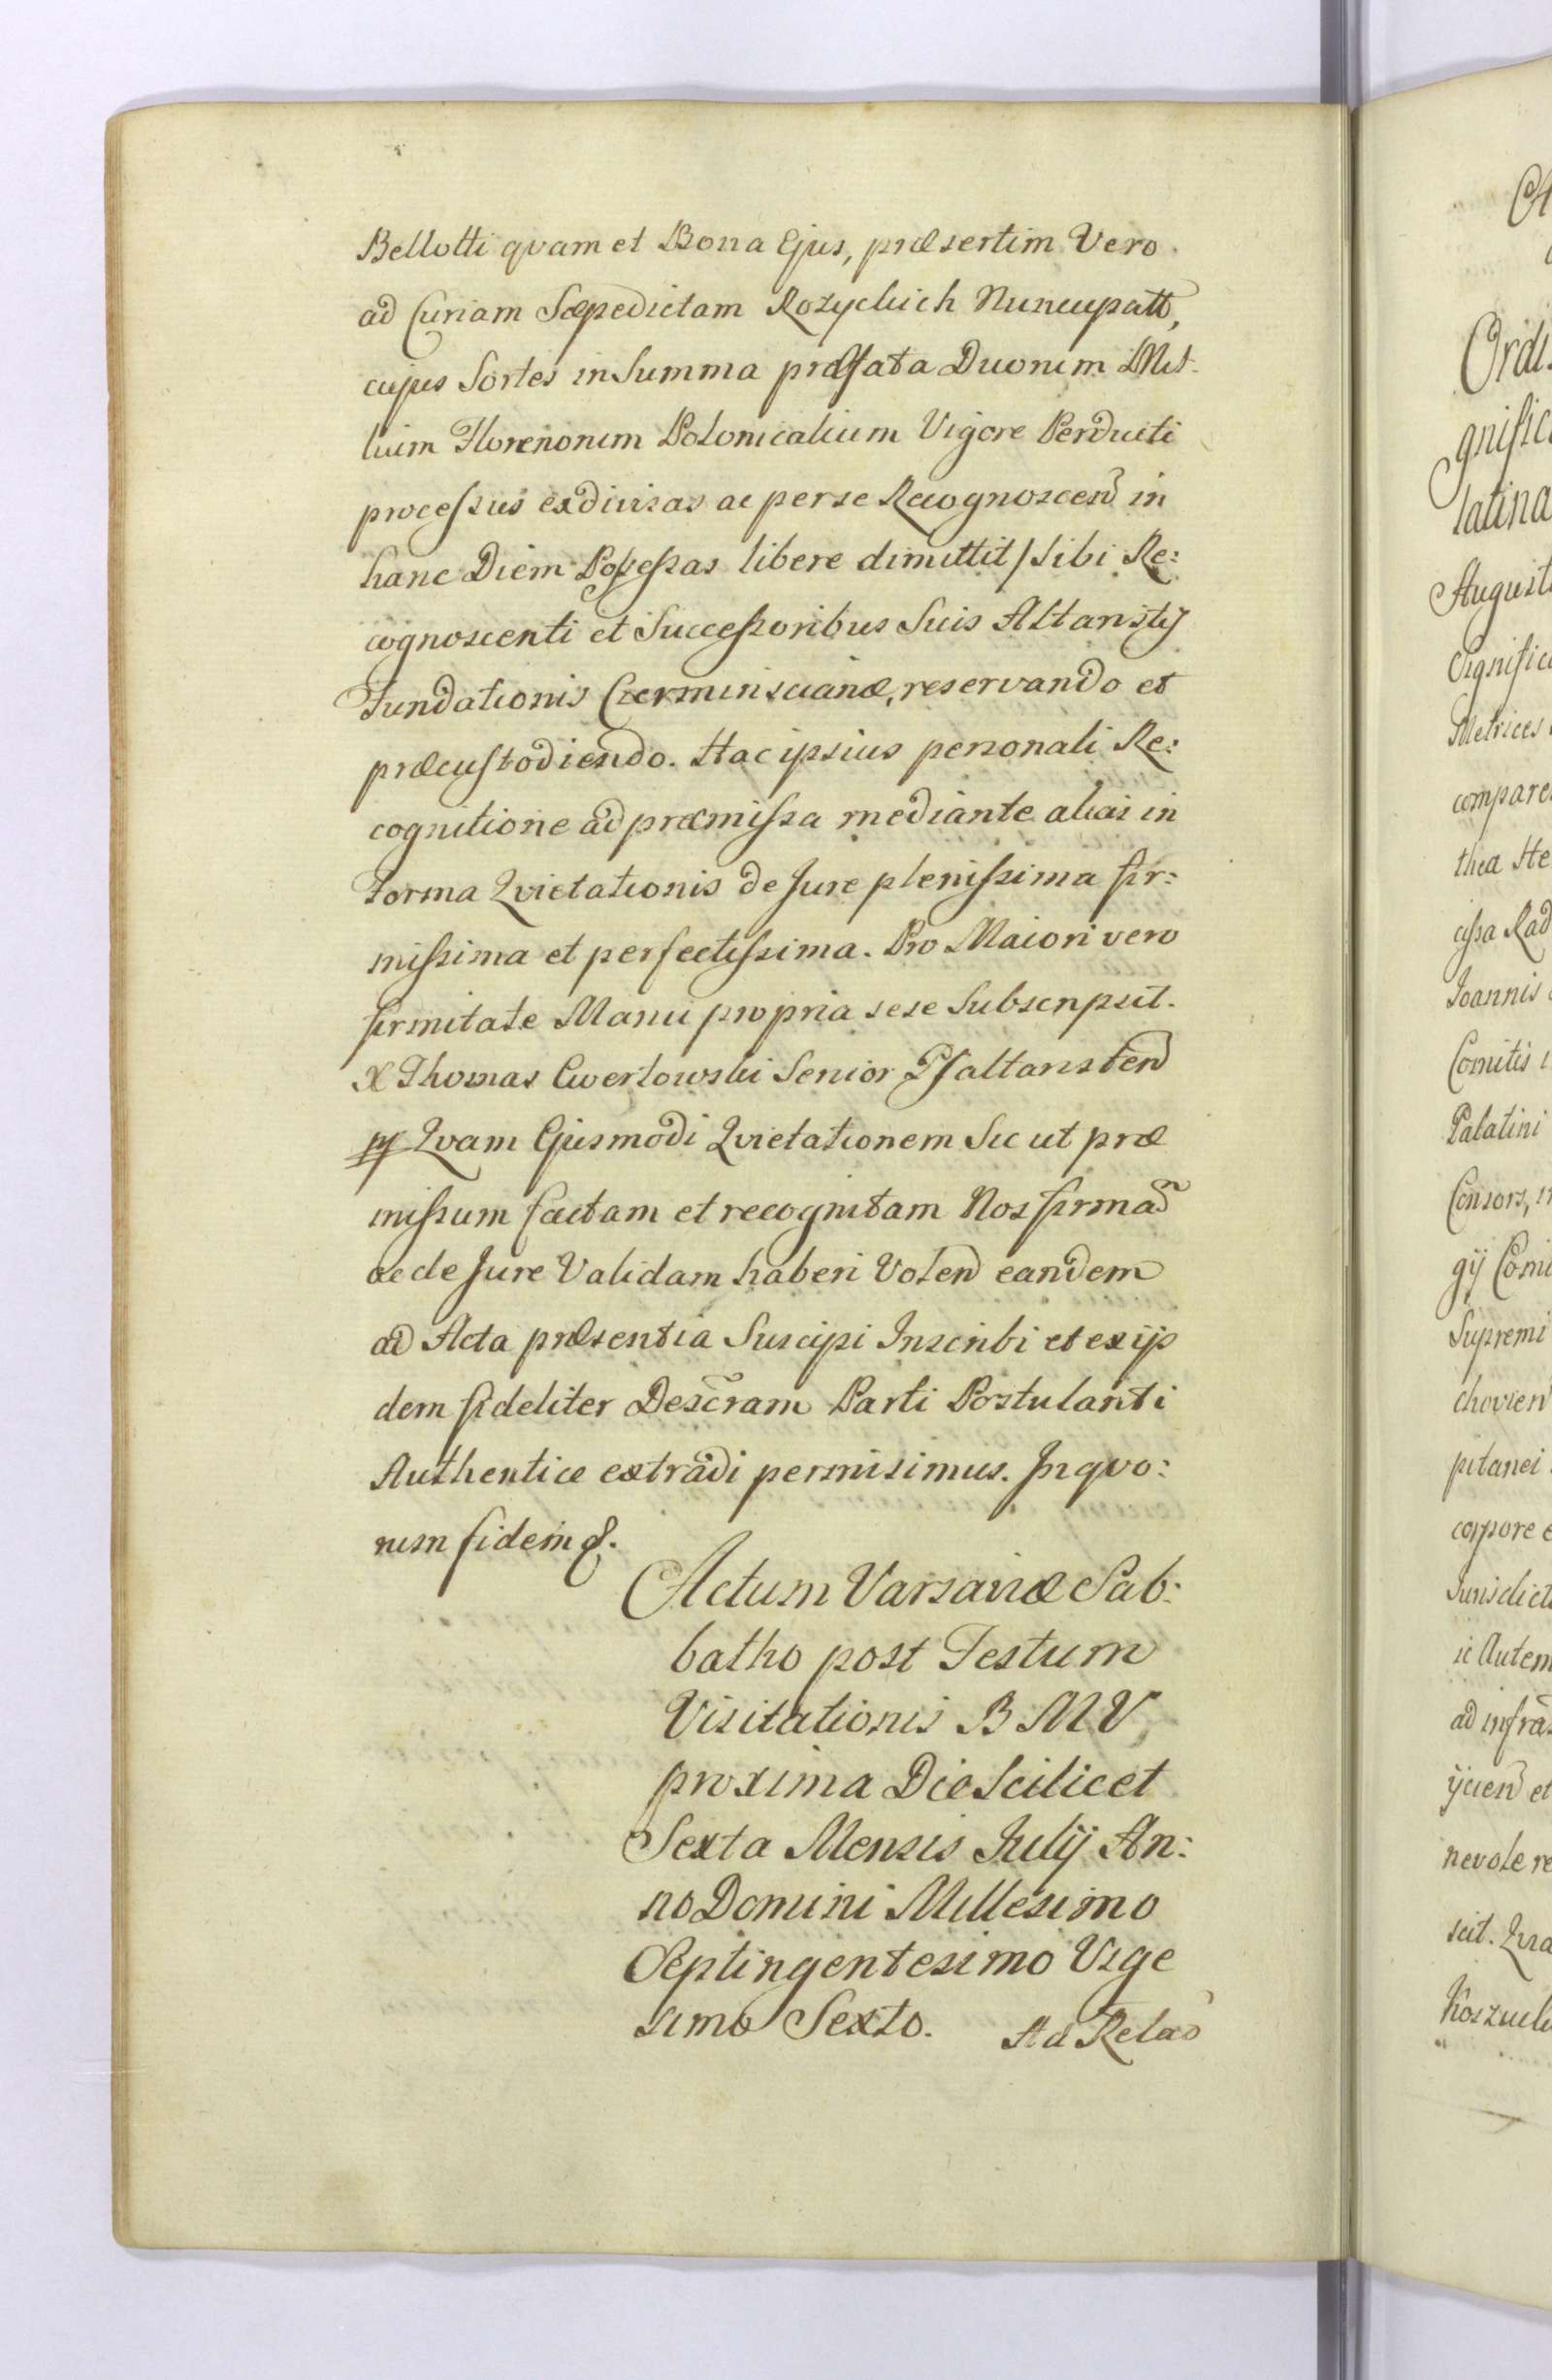 Bellotti qvam et Bona Ejus, præsertim Vero
ad Curiam Sæpedictam Rozyckich Nuncupatt,
cujus Sortes in Summa præfata Duorum Mil-
lium Florenorum Polonicalium Vigore Perducti
processus exdivisas ac per se Recognoscen in
hanc Diem Possessas libere dimittit / sibi Re:
cognoscenti et Successoribus Suis Altaristis
Fundationis Czerminscianæ, reservando et
præcustodiendo. Hac ipsius personali Re:
cognitione ad præmissa mediante alias in
Forma Qvietationis de Jure plenissima fir:
missima et perfectissima. Pro Maiori vero
firmitate Manu propria sese Subscripsit.
X Thomas Cwerlowski Senior Psaltaristen
mp Qvam Ejusmodi Qvietationem Sic ut præ
missum factam et recognitam Nos firmã
ac de Jure Validam haberi Volen eandem
ad Acta præsentia Suscipi Inscribi et ex ijs
dem fideliter Descram Parti Postulanti
Authentice extradi permisimus. In qvo:
rum fidem &.
Actum Varsaviæ Sab:
batho post Festum
Visitationis B M V
proxima Die Scilicet
Sexta Mensis Julij An:
no Domini Millesimo
Septingentesimo Vige
simo Sexto. Ad Relao
Ordi
gnific
latina
August
Metrices
compare
thea He
cissa Rad
Joannis
Comitis
Palatini
Consors,
gij Comi
Supremi
chovien
pitanei
corpore e
Jurisdict
ic Autem
ad infra
ijcien et
nevole re
scit. Qva